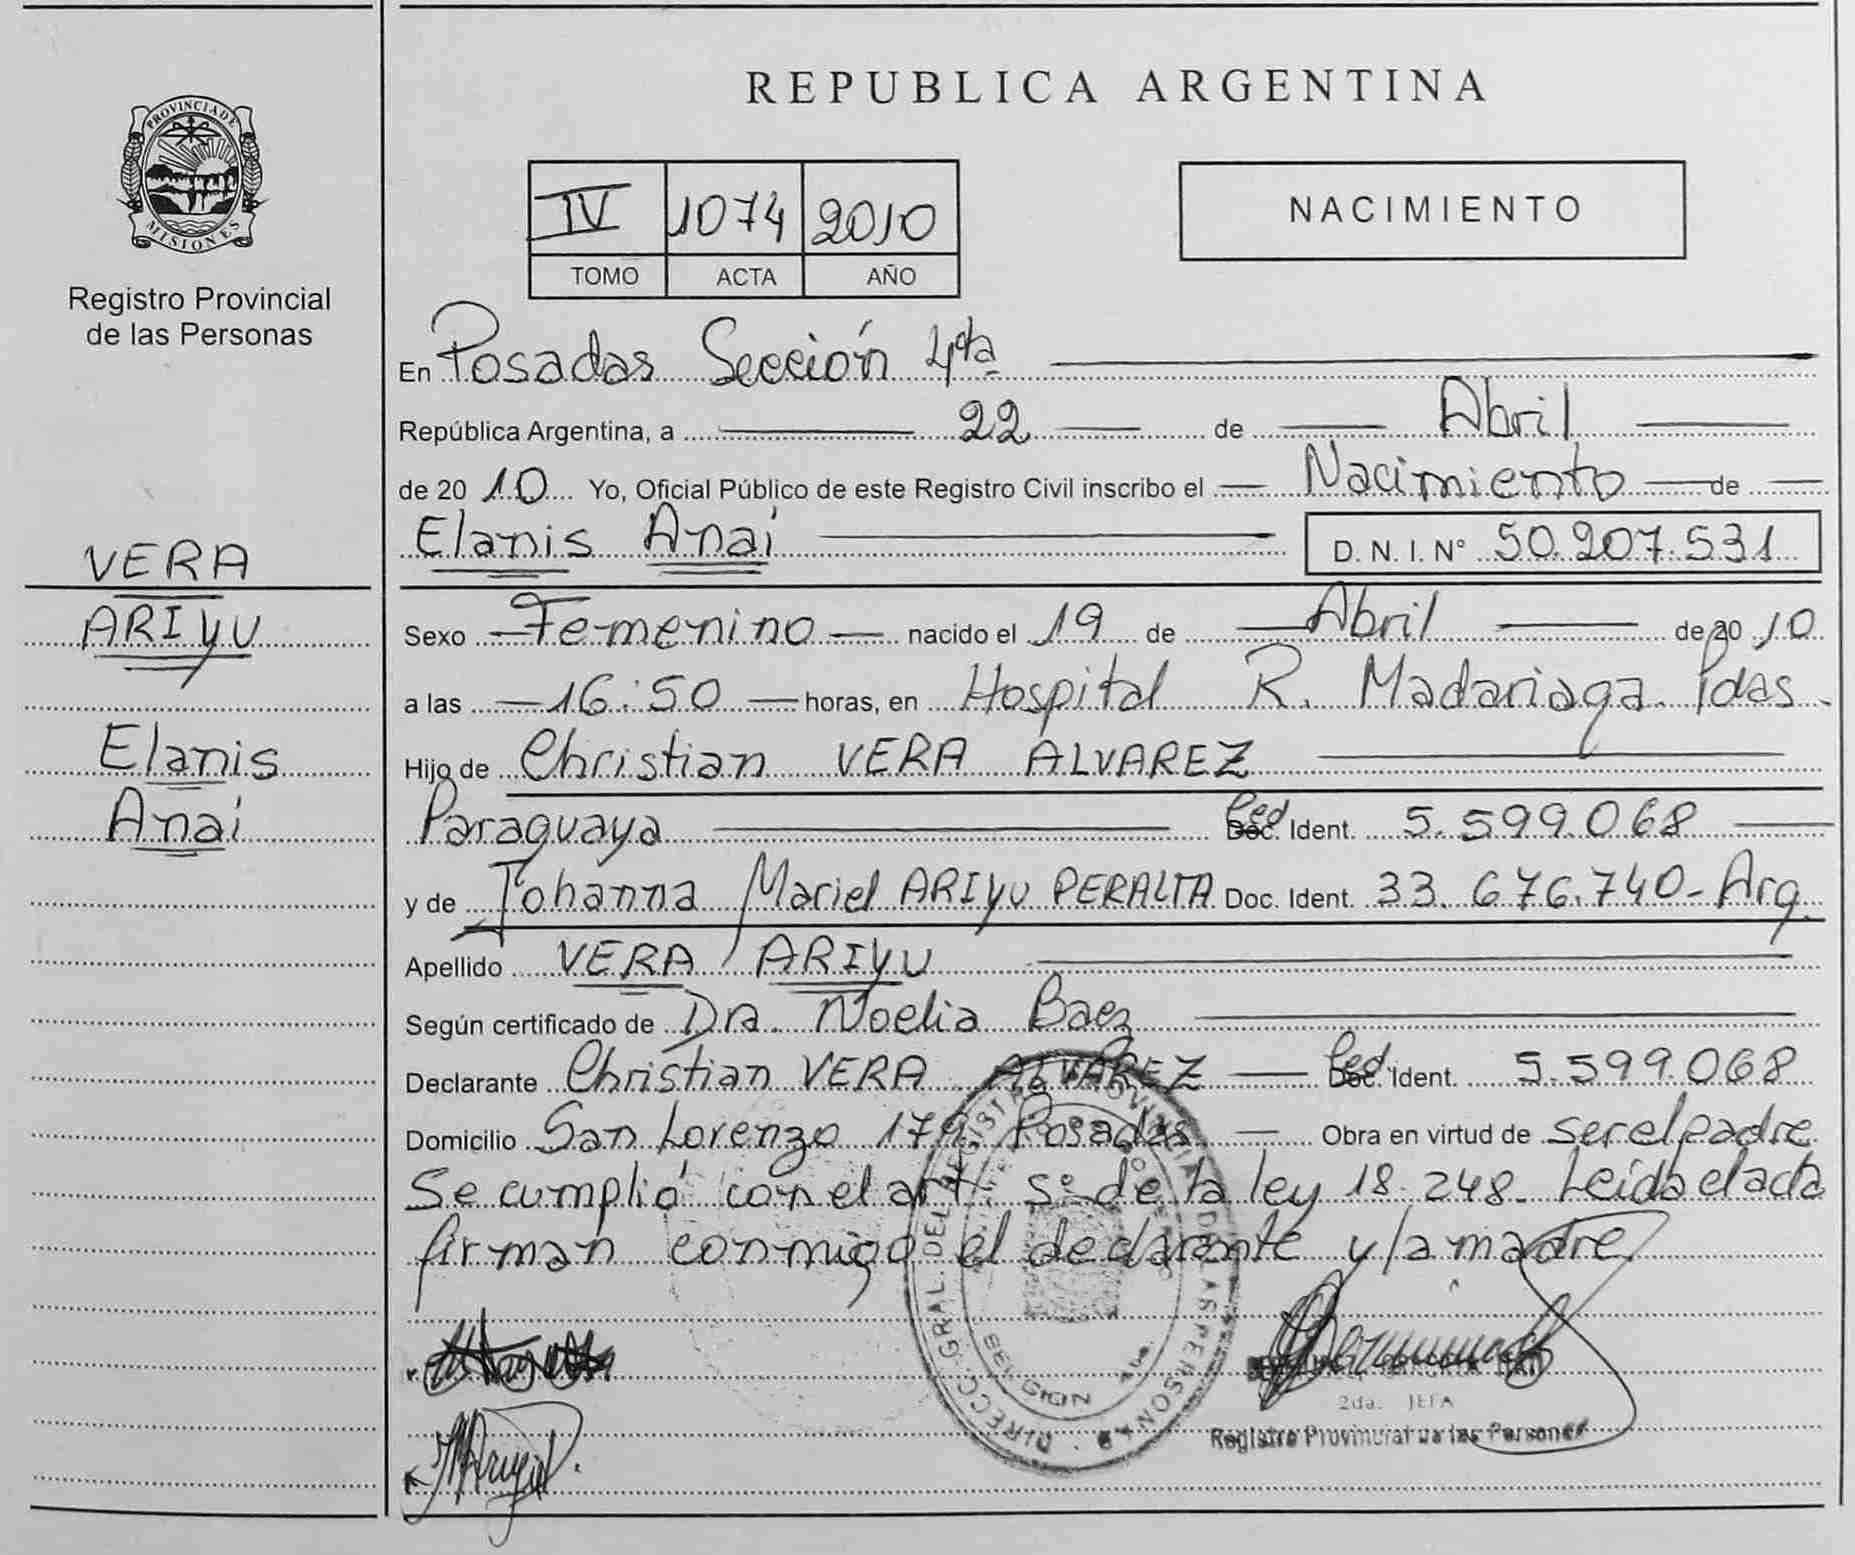 REPUBLICA ARGENTINA
PROVINCIA DE
MISIONES
Registro Provincial
de las Personas
IV 1074 2010
TOMO ACTA AÑO
NACIMIENTO
En Posadas Sección 4ta
República Argentina, a 22 de Abril
de 2010 Yo, Oficial Público de este Registro Civil inscribo el Nacimiento de
Elanis Anai D. N. I. Nº 50.207.531
VERA
ARIYU
Elanis
Anai
Sexo Femenino nacido el 19 de Abril de 2010
a las 16:50 horas, en Hospital R. Madariaga. Pdas.
Hijo de Christian VERA ALVAREZ
Paraguaya Ced Ident. 5.599.068
y de Johanna Mariel ARIYU PERALTA Doc. Ident. 33.676.740- Arg.
Apellido VERA ARIYU
Según certificado de Dra. Noelia Baez
Declarante Christian VERA ALVAREZ Ced Ident. 5.599.068
Domicilio San Lorenzo 179 Posadas Obra en virtud de ser el padre
Se cumplió con el art. 5º de la ley 18.248. Leída el acta
firman conmigo el declarante y la madre
DIRECC. GRAL. DEL REGISTRO PROVINCIAL DE LAS PERSONAS
2da. JEFA
Registro Provincial de las Personas